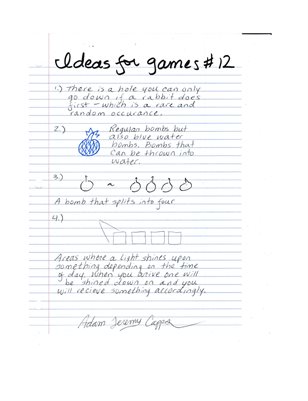 Ideas for games #12
1.) There is a hole you can only
go down if a rabbit does
first - which is a rare and
random occurance.
2.) Regular bombs but
also blue water
bombs. Bombs that
can be thrown into
water.
3.)
A bomb that splits into four
4.)
Areas where a light shines upon
something depending on the time
of day. When you arive one will
be shined down on and you
will recieve something accordingly.
Adam Jeremy